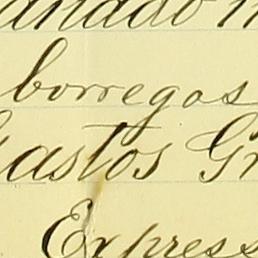 anado
borregos
Gastos Gr
Express